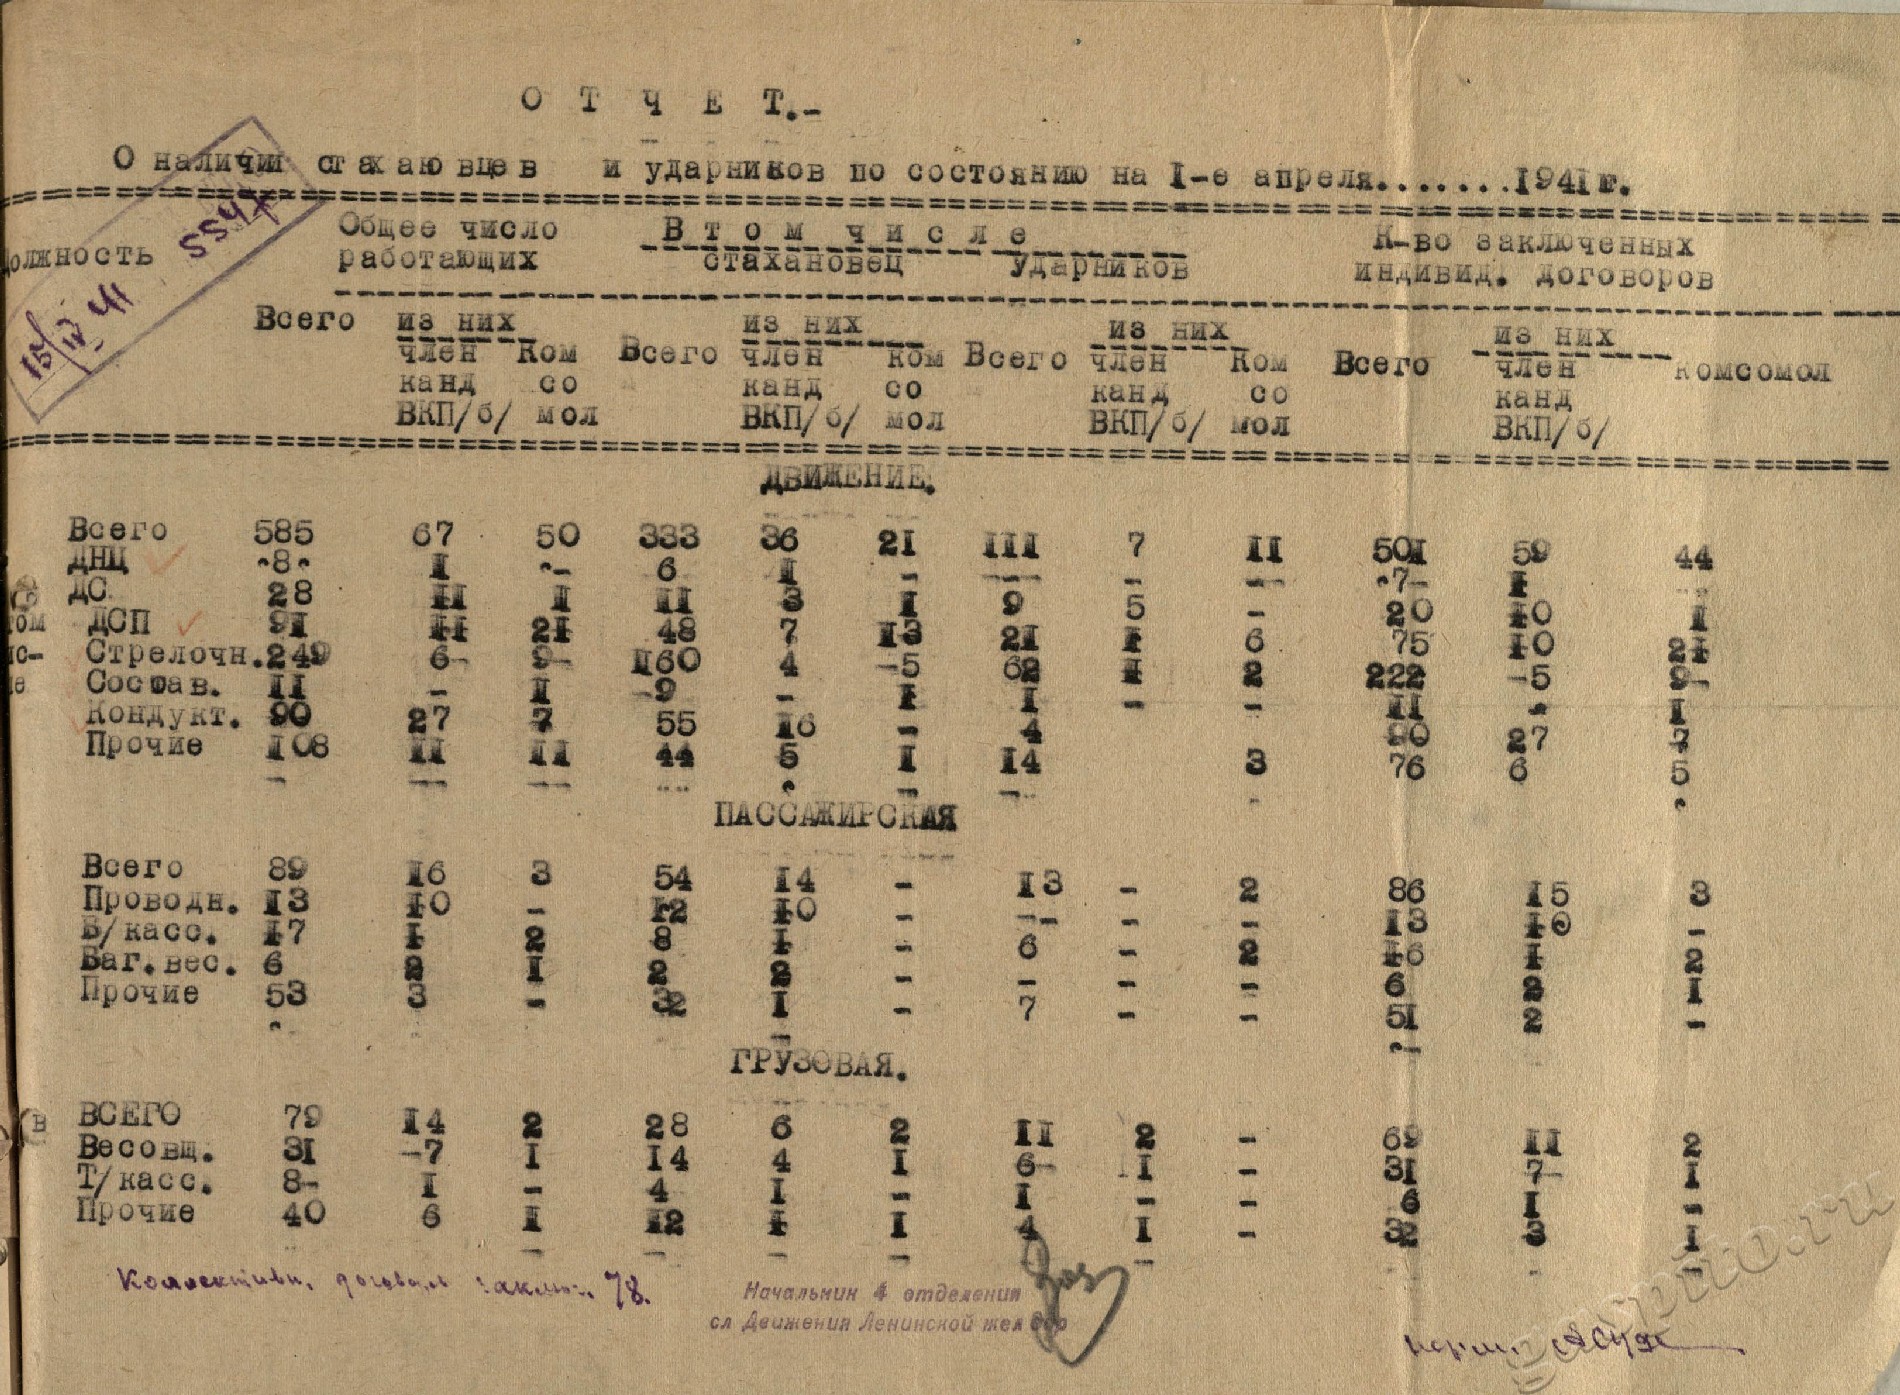 О Т Ч Е Т.-
О наличии стахановцев и ударников по состоянию на I-е апреля.......1941г.
5547
15/IV 41
Общее число В том числе К-во заключенных
должность работающих стахановец ударников индивид. договоров
Всего из них из них из них из них
член Ком Всего член ком Всего член Ком Всего член комсомол
канд со канд со канд со канд
ВКП/б/ мол ВКП/б/ мол ВКП/б/ мол ВКП/б/
ДВИЖЕНИЕ.
Всего 585 67 50 333 36 21 III 7 II 50I 59 44
ДНЦ 8 I - 6 I - -- - -- 7- I
ДС 28 II I II 3 I 9 5 - 20 I0 I
том ДСП 9I II 2I 48 7 I3 2I I 6 75 I0 2I
ис- Стрелочн. 249 6- 9- I60 4 -5 62 I 2 222 -5 9-
ле Состав. II - I -9 - I I - - II - I
Кондукт. 90 27 7 55 I6 - 4 90 27 7
Прочие I08 II II 44 5 I I4 3 76 6 5
ПАССАЖИРСКАЯ
Всего 89 I6 3 54 I4 - I3 - 2 86 I5 3
Проводн. I3 I0 - I2 I0 - -- - - I3 I0 -
Б/касс. I7 I 2 8 I - 6 - 2 I6 I 2
Баг.вес. 6 2 I 2 2 - - - - 6 2 I
Прочие 53 3 - 32 I - 7 - - 5I 2 -
ГРУЗОВАЯ.
в ВСЕГО 79 I4 2 28 6 2 II 2 - 69 II 2
Весовщ. 3I -7 I I4 4 I 6- I - 3I 7- I
Т/касс. 8- I - 4 I - I - - 6 I -
Прочие 40 6 I I2 I I 4 I - 32 3 I
Коллективн. договор. заключ. 78.
Начальник 4 отделения
сл Движения Ленинской жел дор
gorpito.ru